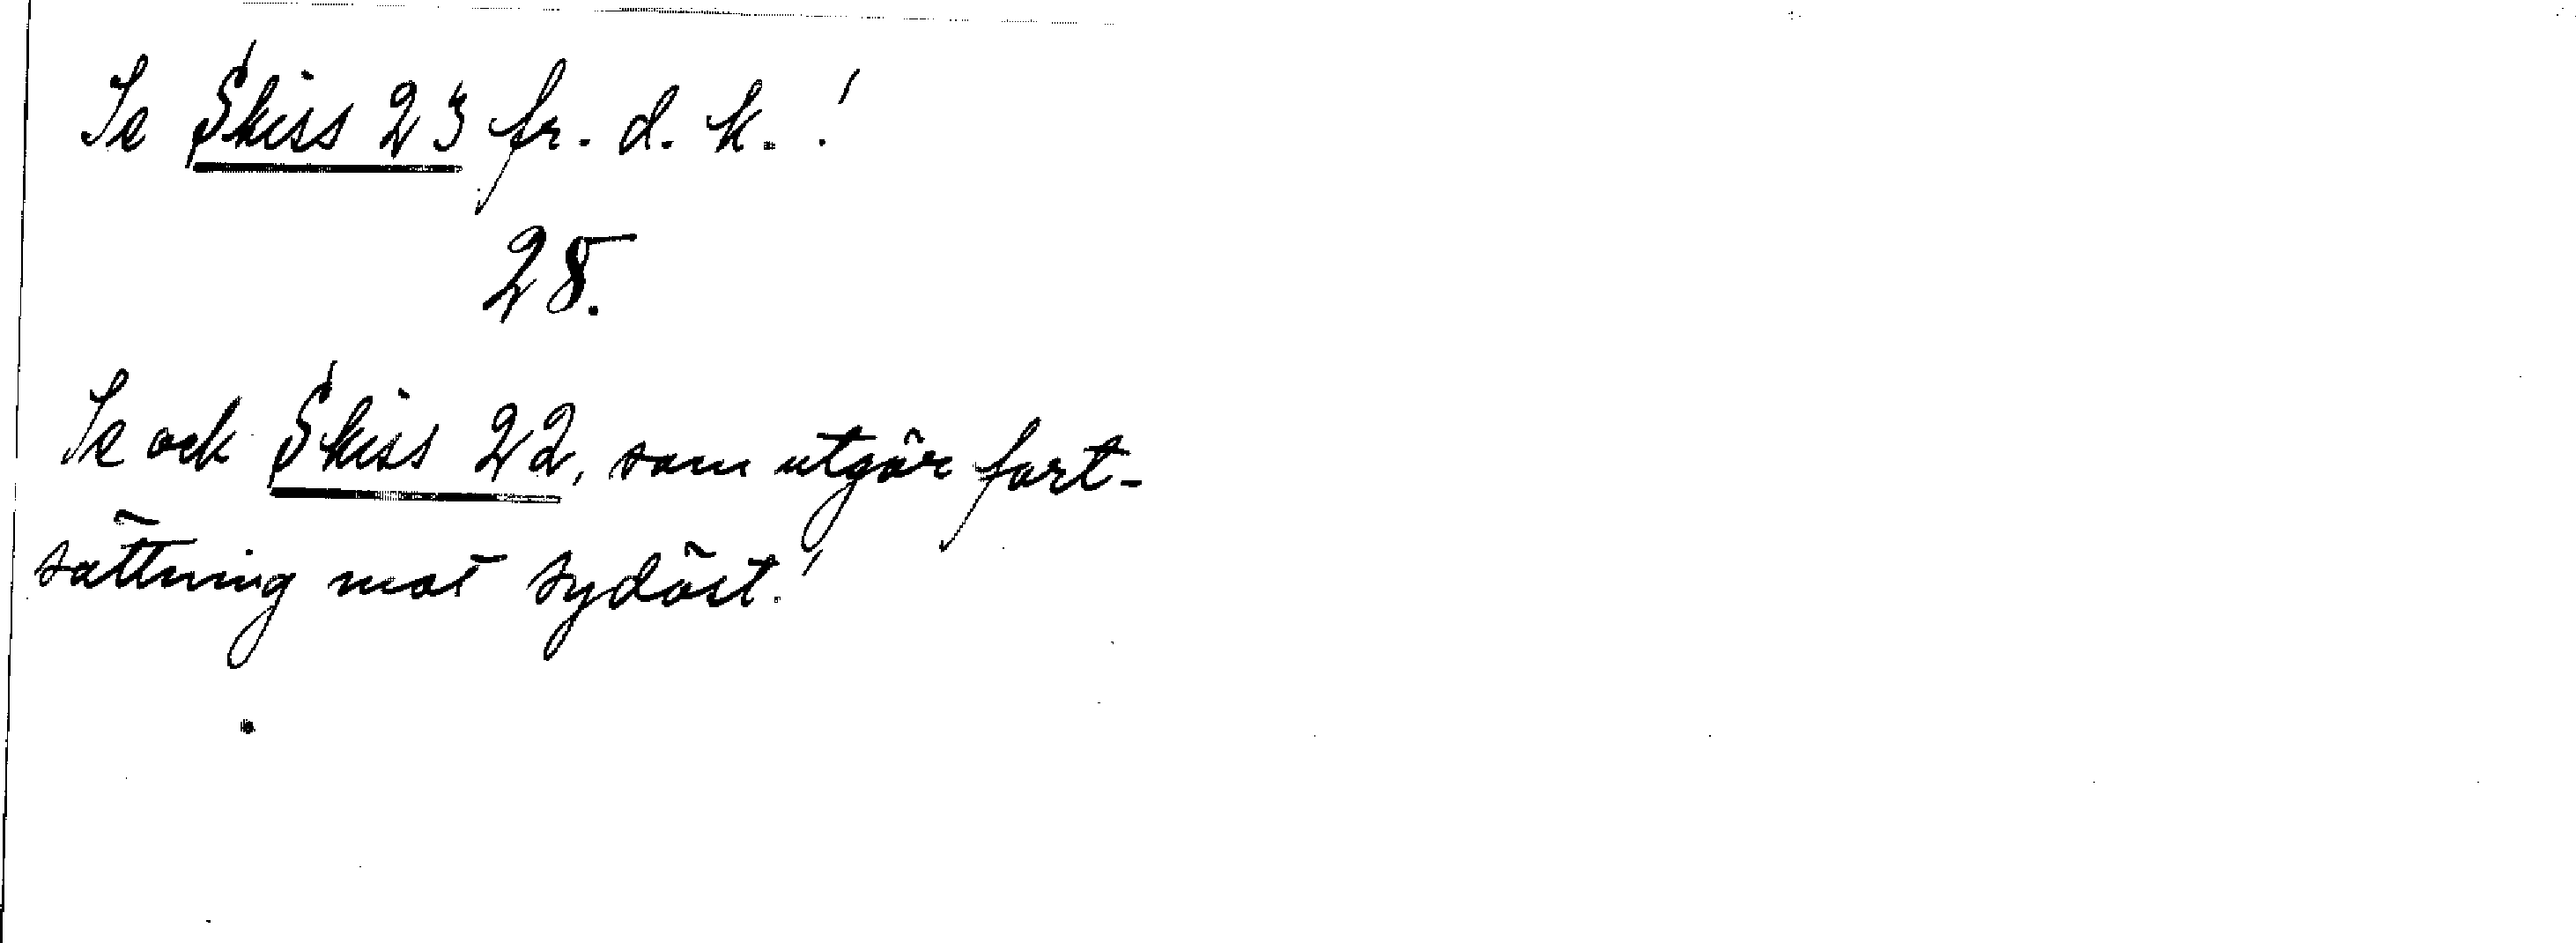 Se Skiss 23 fr. d. k.!
25.
Se ock Skiss 22, som utgör fort-
sättning mot sydöst!